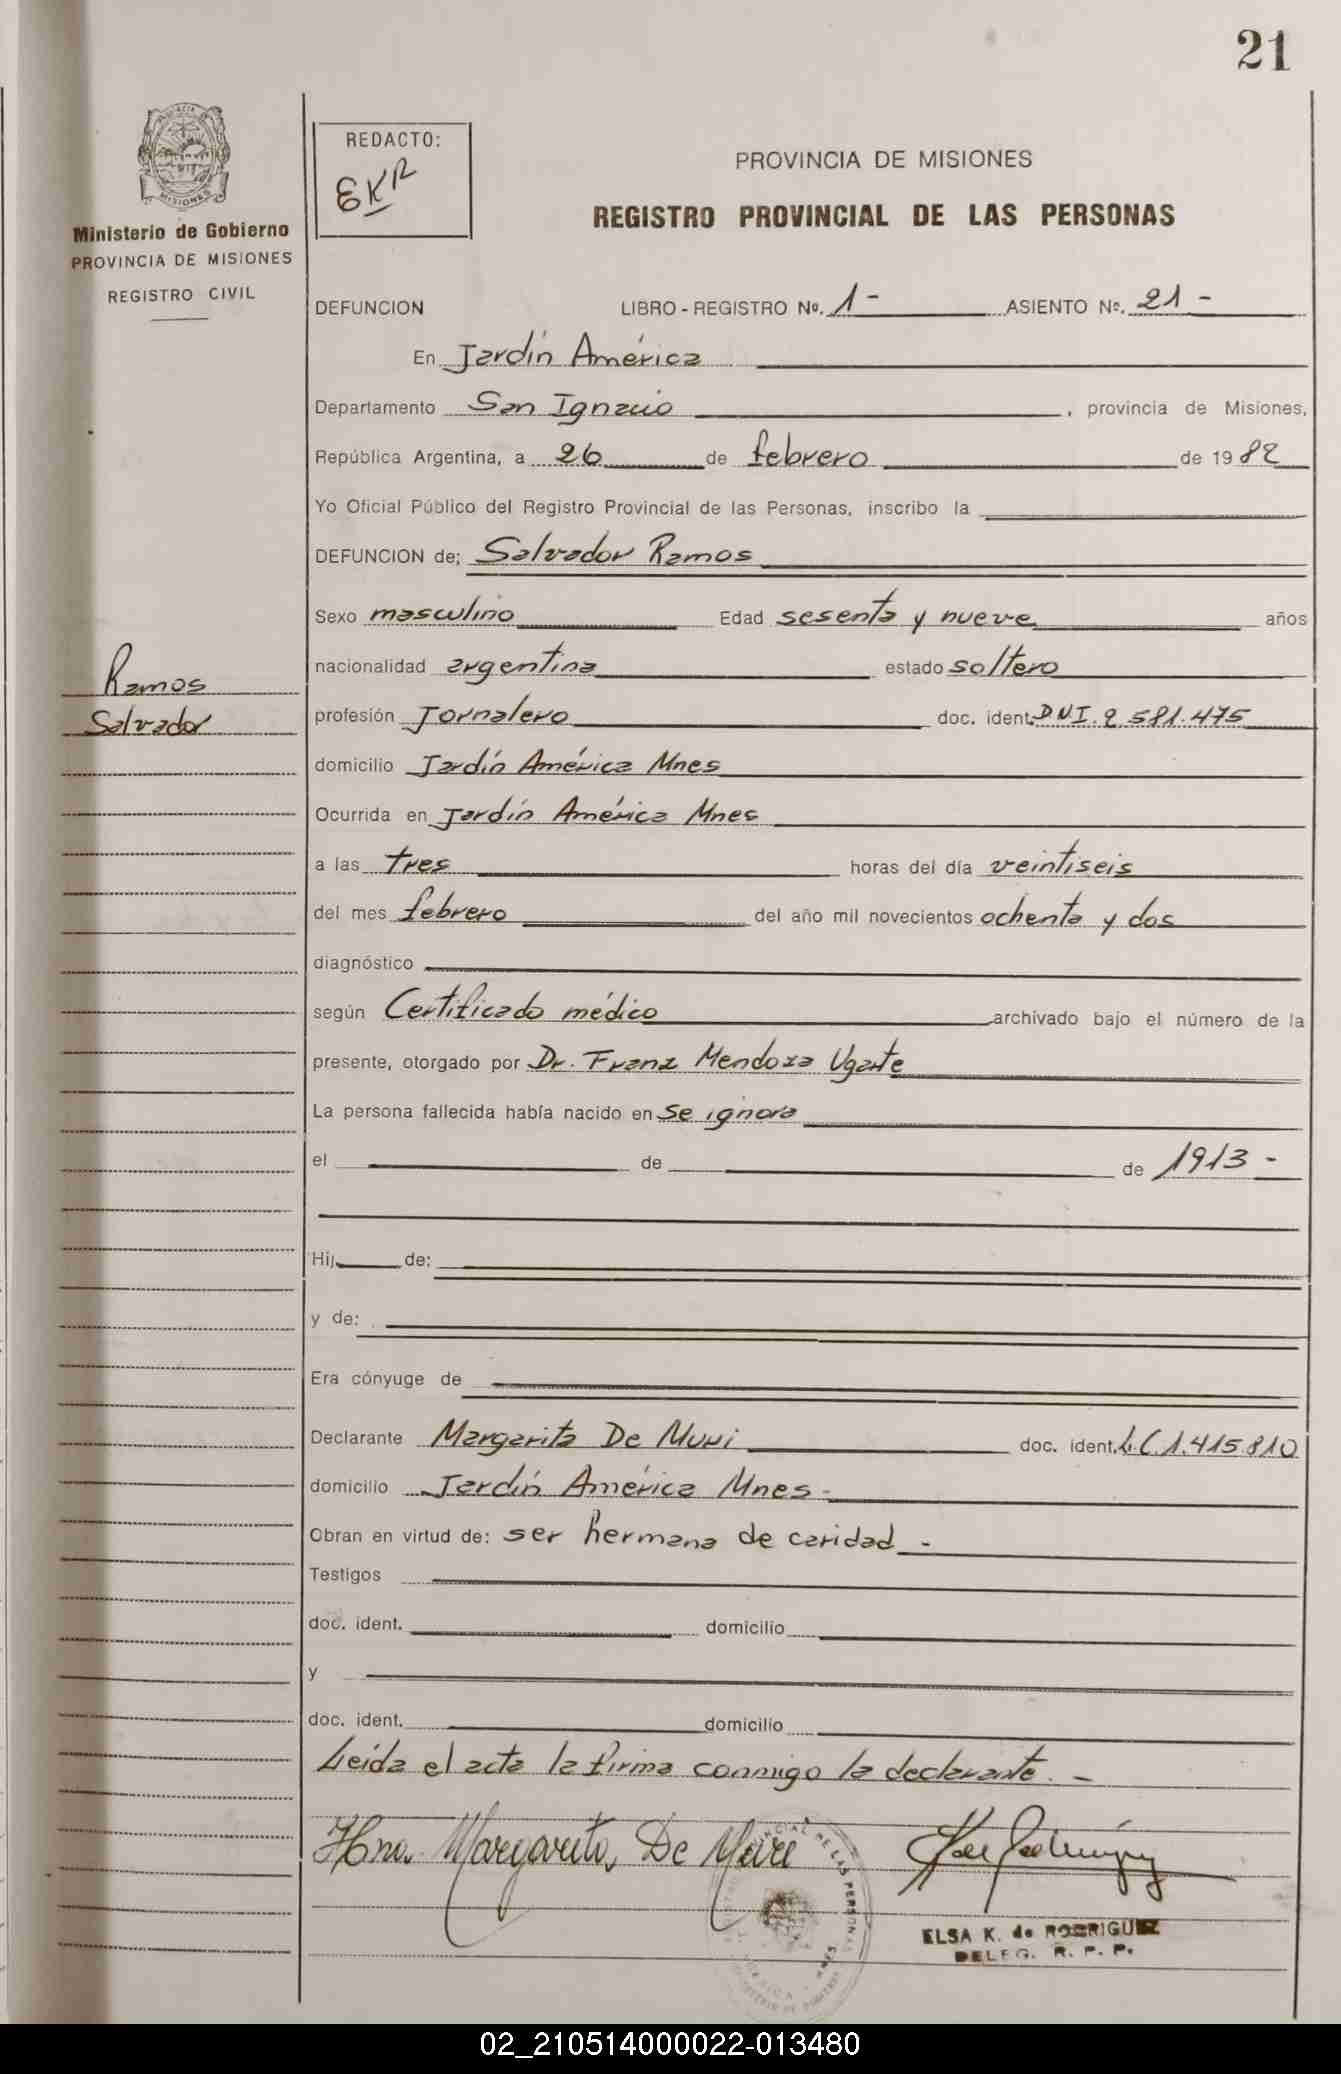 21
MISIONES
Ministerio de Gobierno
PROVINCIA DE MISIONES
REGISTRO CIVIL
REDACTO:
EKR
PROVINCIA DE MISIONES
REGISTRO PROVINCIAL DE LAS PERSONAS
DEFUNCION LIBRO - REGISTRO Nº. 1 - ASIENTO Nº. 21 -
En Jardín América
Departamento San Ignacio, provincia de Misiones,
República Argentina, a 26 de febrero de 1982
Yo Oficial Público del Registro Provincial de las Personas, inscribo la
DEFUNCION de; Salvador Ramos
Sexo masculino Edad sesenta y nueve años
nacionalidad argentina estado soltero
Ramos
Salvador
profesión Jornalero doc. ident. DNI. 2 581.475
domicilio Jardín América Mnes
Ocurrida en Jardín América Mnes
a las tres horas del día veintiseis
del mes febrero del año mil novecientos ochenta y dos
diagnóstico
según Certificado médico archivado bajo el número de la
presente, otorgado por Dr. Franz Mendoza Ugarte
La persona fallecida había nacido en se ignora
el de de 1913 -
Hij de:
y de:
Era cónyuge de
Declarante Margarita De Muri doc. ident. L.C 1.415.810
domicilio Jardín América Mnes -
Obran en virtud de: ser hermana de caridad -
Testigos
doc. ident. domicilio
y
doc. ident. domicilio
Leída el acta la firma conmigo la declarante. -
Hna. Margarita De Muri
ELSA K. de RODRIGUEZ
DELEG. R. P. P.
02_210514000022-013480